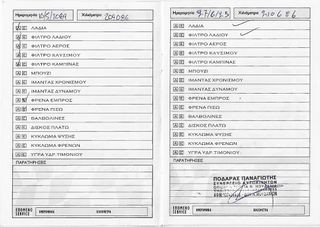 Ημερομηνία 10/5/2024 Χιλιόμετρα 204086
Α Ε ΛΑΔΙΑ
Α Ε ΦΙΛΤΡΟ ΛΑΔΙΟΥ
Α Ε ΦΙΛΤΡΟ ΑΕΡΟΣ
Α Ε ΦΙΛΤΡΟ ΚΑΥΣΙΜΟΥ
Α Ε ΦΙΛΤΡΟ ΚΑΜΠΙΝΑΣ
Α Ε ΜΠΟΥΖΙ
Α Ε ΙΜΑΝΤΑΣ ΧΡΟΝΙΣΜΟΥ
Α Ε ΙΜΑΝΤΑΣ ΔΥΝΑΜΟΥ
Α Ε ΦΡΕΝΑ ΕΜΠΡΟΣ
Α Ε ΦΡΕΝΑ ΠΙΣΩ
Α Ε ΒΑΛΒΟΛΙΝΕΣ
Α Ε ΔΙΣΚΟΣ ΠΛΑΤΩ
Α Ε ΚΥΚΛΩΜΑ ΨΥΞΗΣ
Α Ε ΚΥΚΛΩΜΑ ΦΡΕΝΩΝ
Α Ε ΥΓΡΑ ΥΔΡ. ΤΙΜΟΝΙΟΥ
ΠΑΡΑΤΗΡΗΣΕΙΣ
ΕΠΟΜΕΝΟ SERVICE ΗΜΕΡΟΜΗΝΙΑ ΧΙΛΙΟΜΕΤΡΑ
Ημερομηνία Χιλιόμετρα
Α Ε ΛΑΔΙΑ
Α Ε ΦΙΛΤΡΟ ΛΑΔΙΟΥ
Α Ε ΦΙΛΤΡΟ ΑΕΡΟΣ
Α Ε ΦΙΛΤΡΟ ΚΑΥΣΙΜΟΥ
Α Ε ΦΙΛΤΡΟ ΚΑΜΠΙΝΑΣ
Α Ε ΜΠΟΥΖΙ
Α Ε ΙΜΑΝΤΑΣ ΧΡΟΝΙΣΜΟΥ
Α Ε ΙΜΑΝΤΑΣ ΔΥΝΑΜΟΥ
Α Ε ΦΡΕΝΑ ΕΜΠΡΟΣ
Α Ε ΦΡΕΝΑ ΠΙΣΩ
Α Ε ΒΑΛΒΟΛΙΝΕΣ
Α Ε ΔΙΣΚΟΣ ΠΛΑΤΩ
Α Ε ΚΥΚΛΩΜΑ ΨΥΞΗΣ
Α Ε ΚΥΚΛΩΜΑ ΦΡΕΝΩΝ
Α Ε ΥΓΡΑ ΥΔΡ. ΤΙΜΟΝΙΟΥ
ΠΑΡΑΤΗΡΗΣΕΙΣ
ΠΟΔΑΡΑΣ ΠΑΝΑΓΙΩΤΗΣ
ΣΥΝΕΡΓΕΙΟ ΑΥΤΟΚΙΝΗΤΩΝ
ΕΠΟΜΕΝΟ SERVICE ΗΜΕΡΟΜΗΝΙΑ ΧΙΛΙΟΜΕΤΡΑ